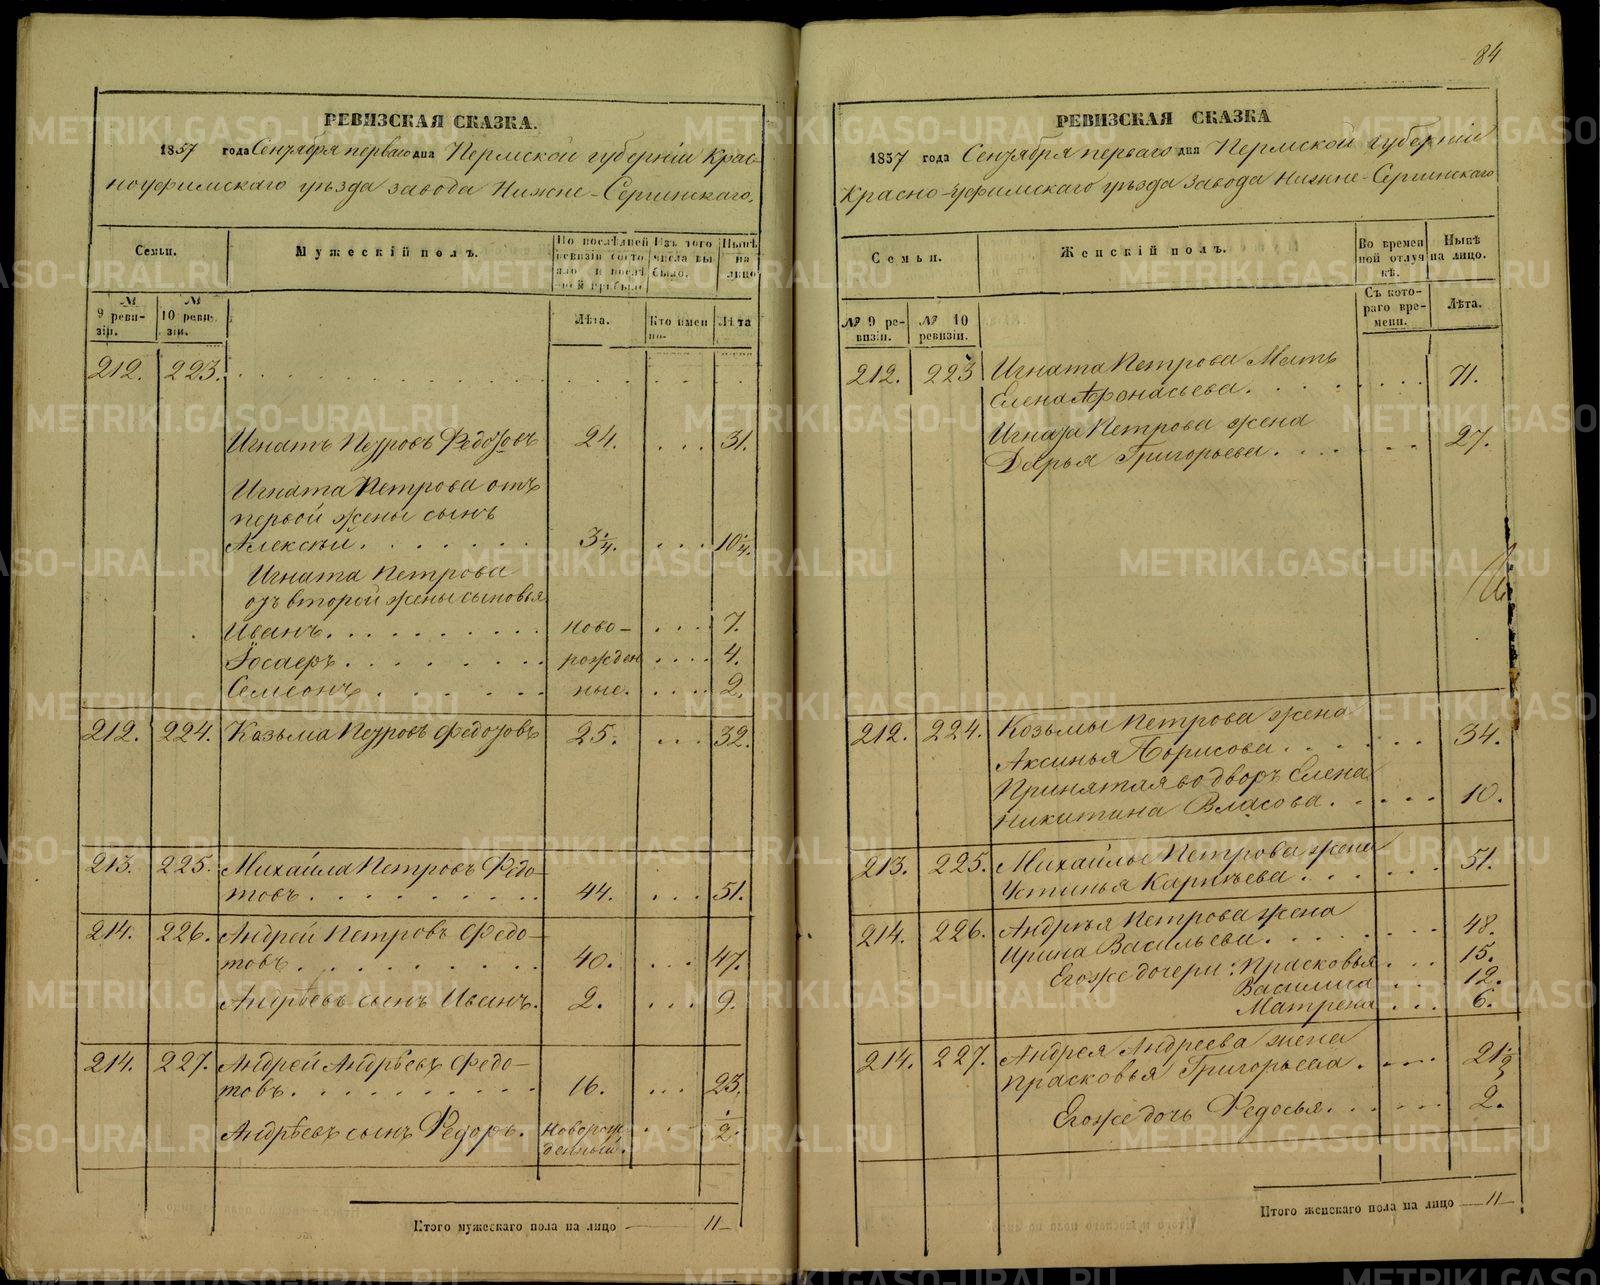 84
РЕВИЗСКАЯ СКАЗКА.
1857 года Сентября перваго дня Пермской губерніи Крас-
ноуфимскаго уѣзда завода Нижне-Сергинскаго.
Семьи.
Мужескій полъ.
По послѣдней ревизіи состояло и послѣ ней прибыло
Изъ того числа выбыло.
Нынѣ на лицо
№ 9 ревизіи.
№ 10 ревизіи.
Лѣта.
Кто именно.
Лѣта
212. 223.
Игнатъ Петровъ Федотовъ 24. 31.
Игната Петрова отъ
первой жены сынъ
Алексѣй 3 1/4. 10 1/4.
Игната Петрова
отъ второй жены сыновья
Иванъ ново- 7.
рожден 4.
Семеонъ ные. 2.
212. 224. Козьма Петровъ Федотовъ 25. 32.
213. 225. Михайла Петровъ Федо-
товъ 44. 51.
214. 226. Андрей Петровъ Федо-
товъ 40. 47.
Андрѣевъ сынъ Иванъ. 2. 9.
214. 227. Андрей Андрѣевъ Федо-
товъ 16. 23.
Андрѣевъ сынъ Ѳедоръ. Новорож- 1/2.
денный.
Итого мужескаго пола на лицо 11
РЕВИЗСКАЯ СКАЗКА
1857 года Сентября перваго дня Пермской губерніи
Красно-уфимскаго уѣзда завода Нижне-Сергинскаго
Семьи.
Женскій полъ.
Во временной отлучкѣ.
Нынѣ на лицо.
№ 9 ревизіи.
№ 10 ревизіи.
Съ котораго времени.
Лѣта.
212. 223 Игната Петрова Мать
Елена Афонасьева. 71.
Игната Петрова жена
Дарья Григорьева. 27.
212. 224. Козьмы Петрова жена
Аксинья Борисова. 34.
Принятая во дворъ Елена
Никитина Власова. 10.
213. 225. Михайлы Петрова жена
Устинья Карпѣева. 51.
214. 226. Андрѣя Петрова жена
Ирина Васильева. 48.
Его же дочери: Прасковья 15.
Василиса 12.
Матрена 6.
214. 227. Андрея Андреева жена
Прасковья Григорьева. 21 1/2
Его же дочь Ѳедосья. 2.
Итого женскаго пола на лицо 11
METRIKI.GASO-URAL.RU